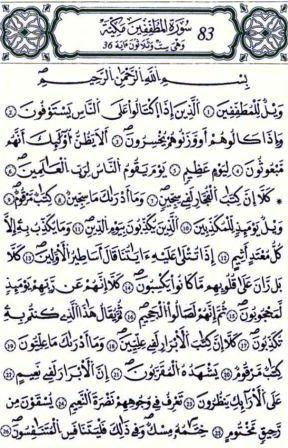 سُورَةُ الْمُطَفِّفِينَ مَكِّيَّةٌ 83
وَهِيَ سِتٌّ وَثَلَاثُونَ ءَايَةً 36
بِسْمِ اللَّهِ الرَّحْمَٰنِ الرَّحِيمِ
وَيْلٌ لِّلْمُطَفِّفِينَ ١ الَّذِينَ إِذَا اكْتَالُوا عَلَى النَّاسِ يَسْتَوْفُونَ ٢
وَإِذَا كَالُوهُمْ أَو وَّزَنُوهُمْ يُخْسِرُونَ ٣ أَلَا يَظُنُّ أُوْلَٰئِكَ أَنَّهُم
مَّبْعُوثُونَ ٤ لِيَوْمٍ عَظِيمٍ ٥ يَوْمَ يَقُومُ النَّاسُ لِرَبِّ الْعَٰلَمِينَ ٦
كَلَّا إِنَّ كِتَٰبَ الْفُجَّارِ لَفِي سِجِّينٍ ٧ وَمَا أَدْرَىٰكَ مَا سِجِّينٌ ٨ كِتَٰبٌ مَّرْقُومٌ ٩
وَيْلٌ يَوْمَئِذٍ لِّلْمُكَذِّبِينَ ١٠ الَّذِينَ يُكَذِّبُونَ بِيَوْمِ الدِّينِ ١١ وَمَا يُكَذِّبُ بِهِ إِلَّا
كُلُّ مُعْتَدٍ أَثِيمٍ ١٢ إِذَا تُتْلَىٰ عَلَيْهِ ءَايَٰتُنَا قَالَ أَسَٰطِيرُ الْأَوَّلِينَ ١٣ كَلَّا
بَلْ رَانَ عَلَىٰ قُلُوبِهِم مَّا كَانُوا يَكْسِبُونَ ١٤ كَلَّا إِنَّهُمْ عَن رَّبِّهِمْ يَوْمَئِذٍ
لَّمَحْجُوبُونَ ١٥ ثُمَّ إِنَّهُمْ لَصَالُوا الْجَحِيمِ ١٦ ثُمَّ يُقَالُ هَٰذَا الَّذِي كُنتُم بِهِ
تُكَذِّبُونَ ١٧ كَلَّا إِنَّ كِتَٰبَ الْأَبْرَارِ لَفِي عِلِّيِّينَ ١٨ وَمَا أَدْرَىٰكَ مَا عِلِّيُّونَ ١٩
كِتَٰبٌ مَّرْقُومٌ ٢٠ يَشْهَدُهُ الْمُقَرَّبُونَ ٢١ إِنَّ الْأَبْرَارَ لَفِي نَعِيمٍ ٢٢
عَلَى الْأَرَائِكِ يَنظُرُونَ ٢٣ تَعْرِفُ فِي وُجُوهِهِمْ نَضْرَةَ النَّعِيمِ ٢٤ يُسْقَوْنَ مِن
رَّحِيقٍ مَّخْتُومٍ ٢٥ خِتَٰمُهُ مِسْكٌ وَفِي ذَٰلِكَ فَلْيَتَنَافَسِ الْمُتَنَٰفِسُونَ ٢٦